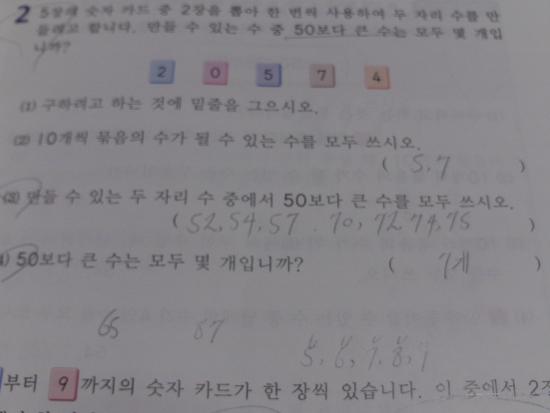 2 5장의 숫자 카드 중 2장을 뽑아 한 번씩 사용하여 두 자리 수를 만
들려고 합니다. 만들 수 있는 수 중 50보다 큰 수는 모두 몇 개입
니까?
2 0 5 7 4
(1) 구하려고 하는 것에 밑줄을 그으시오.
(2) 10개씩 묶음의 수가 될 수 있는 수를 모두 쓰시오.
( 5, 7 )
(3) 만들 수 있는 두 자리 수 중에서 50보다 큰 수를 모두 쓰시오.
( 52, 54, 57, 70, 72, 74, 75 )
50보다 큰 수는 모두 몇 개입니까? ( 7개 )
65 87
5, 6, 7, 8, 9
부터 9 까지의 숫자 카드가 한 장씩 있습니다. 이 중에서 2장